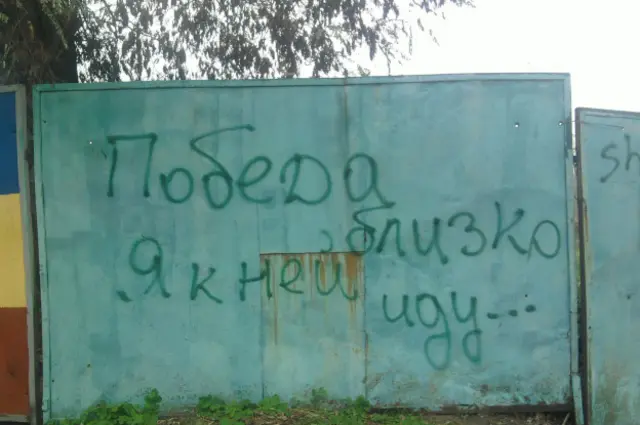 Победа
близко
Я к ней
иду...
sh